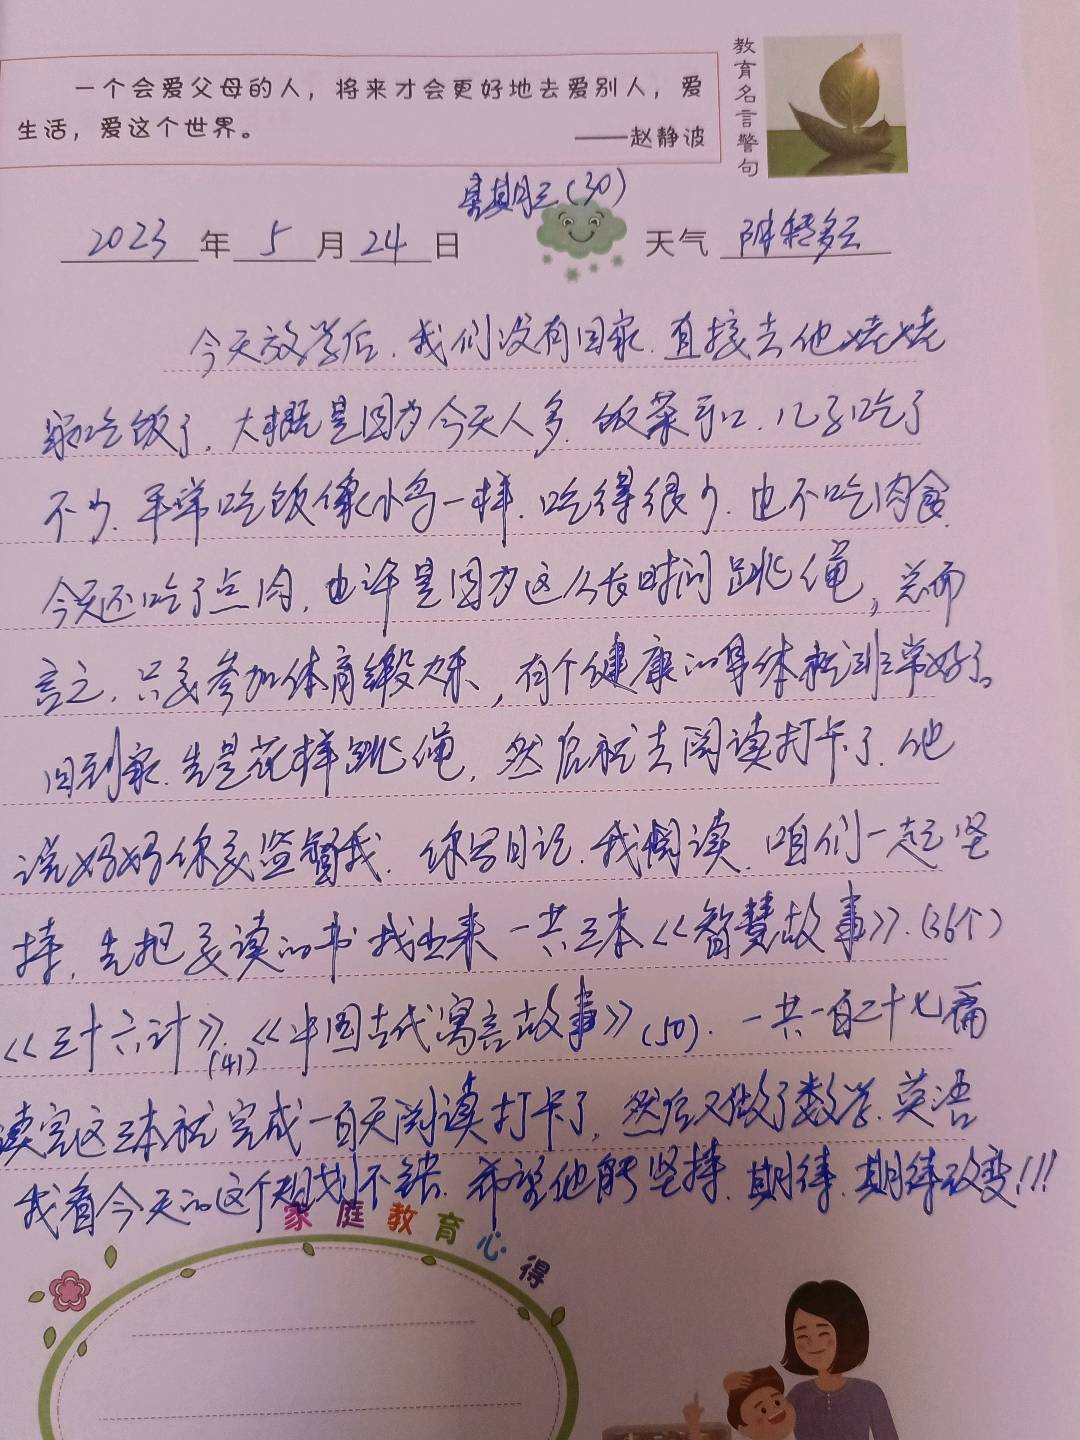 一个会爱父母的人，将来才会更好地去爱别人，爱
生活，爱这个世界。
——赵静波
教育名言警句
星期三(30)
2023年5月24日 天气 阴转多云
今天放学后，我们没有回家，直接去他姥姥
家吃饭了，大概是因为今天人多，饭菜可口，儿子吃了
不少，平常吃饭像小鸟一样，吃得很少，也不吃肉食，
今天还吃了点肉，也许是因为这么长时间跳绳，总而
言之，只要参加体育锻炼，有个健康的身体就非常好了。
回到家，先是花样跳绳，然后就去阅读打卡了，他
说妈妈你要监督我，你写日记，我阅读，咱们一起坚
持，先把要读的书找出来一共三本《智慧故事》.(36个)
《三十六计》(41)《中国古代寓言故事》(50)，一共一百二十七篇
读完这三本就完成一百天阅读打卡了，然后又做了数学，英语
我看今天的这个规划不错，希望他能坚持，期待，期待改变!!!
家庭教育心得